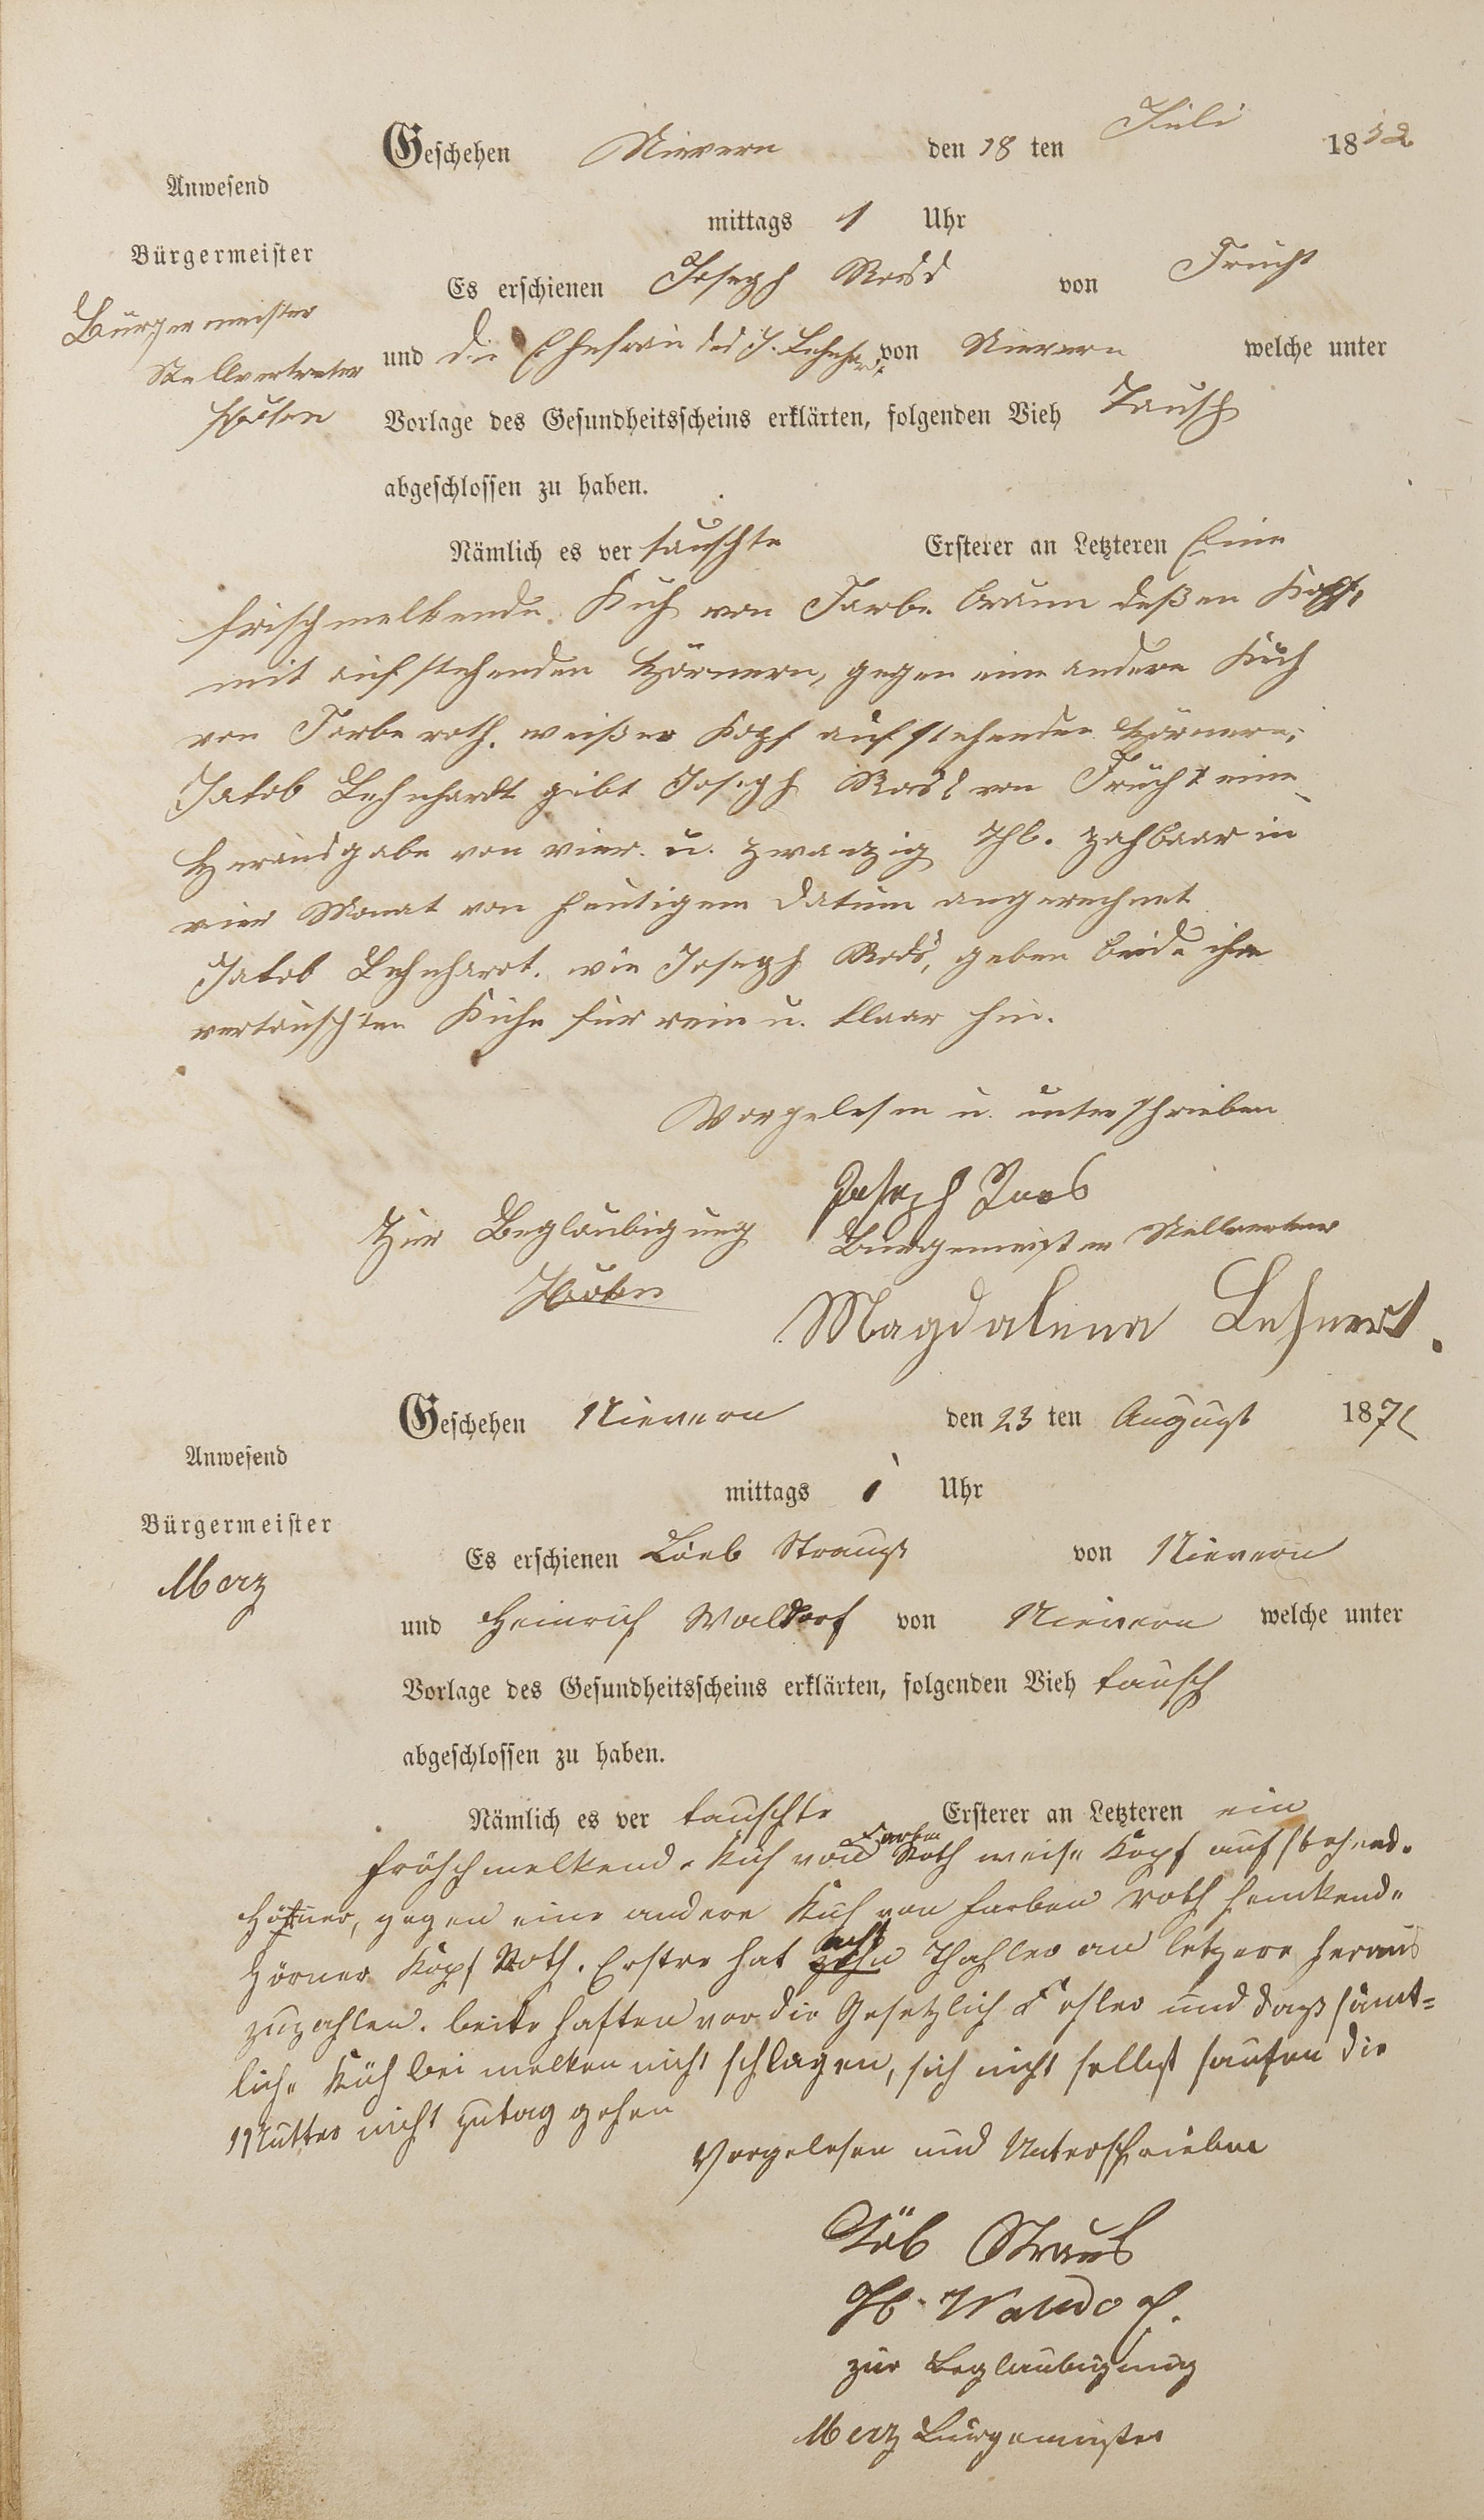 Geschehen Nievern den 18 ten Juli 1852
Anwesend
mittags 1 Uhr
Bürgermeister
Es erschienen Joseph Roos von Frücht
Bürgermeister
und die Ehefrau des J. Lehnhardt von Nievern welche unter
Stellvertreter
Vorlage des Gesundheitsscheins erklärten, folgenden Vieh Tausch
abgeschlossen zu haben.
Nämlich es ver tauschte Ersterer an Letzteren Eine
frischmelkende Kuh von Farbe braun deßen Kopf,
mit aufstehenden Hörnern, gegen eine andere Kuh
von Farbe roth, weißer Kopf aufstehenden Hörnern,
Jakob Lehnhardt gibt Joseph Roos von Frücht eine
Herausgabe von vier u. zwanzig Thl. zahlbaar in
vier Monat von heutigem Datum angerechnet
Jakob Lehnhardt. wie Joseph Roos, geben beide ihre
vertauschten Kühe für rein u. klaar hin.
Vorgelesen u. unterschrieben
Joseph Roos
Zur Beglaubigung Burgemeister Stellvertreter
Magdalena Lehnert.
Geschehen Nievern den 23 ten August 1871
Anwesend
mittags 1 Uhr
Bürgermeister
Es erschienen Löeb Strauß von Nievern
Merz
und Heinrich Waldorf von Nievern welche unter
Vorlage des Gesundheitsscheins erklärten, folgenden Vieh tausch
abgeschlossen zu haben.
Nämlich es ver tauschte Ersterer an Letzteren ein
fröschmelkende Kuh von Farben Roth weise Kopf aufstehende
Hörner, gegen eine andere Kuh von farben roth henkende
Hörner Kopf Roth. Erstre hat zehn acht Thahler an letzere heraus
zuzahlen. beite haften vor die Gesetzlich Fehler und daß sämt=
liche Küh bei melken nicht schlagen, sich nicht selbst saufen die
Mutter nicht zutag gehen
Vorgelesen und Unterschrieben
Löb Straus
H. Waldorf.
zur Beglaubigung
Merz Bürgemeister